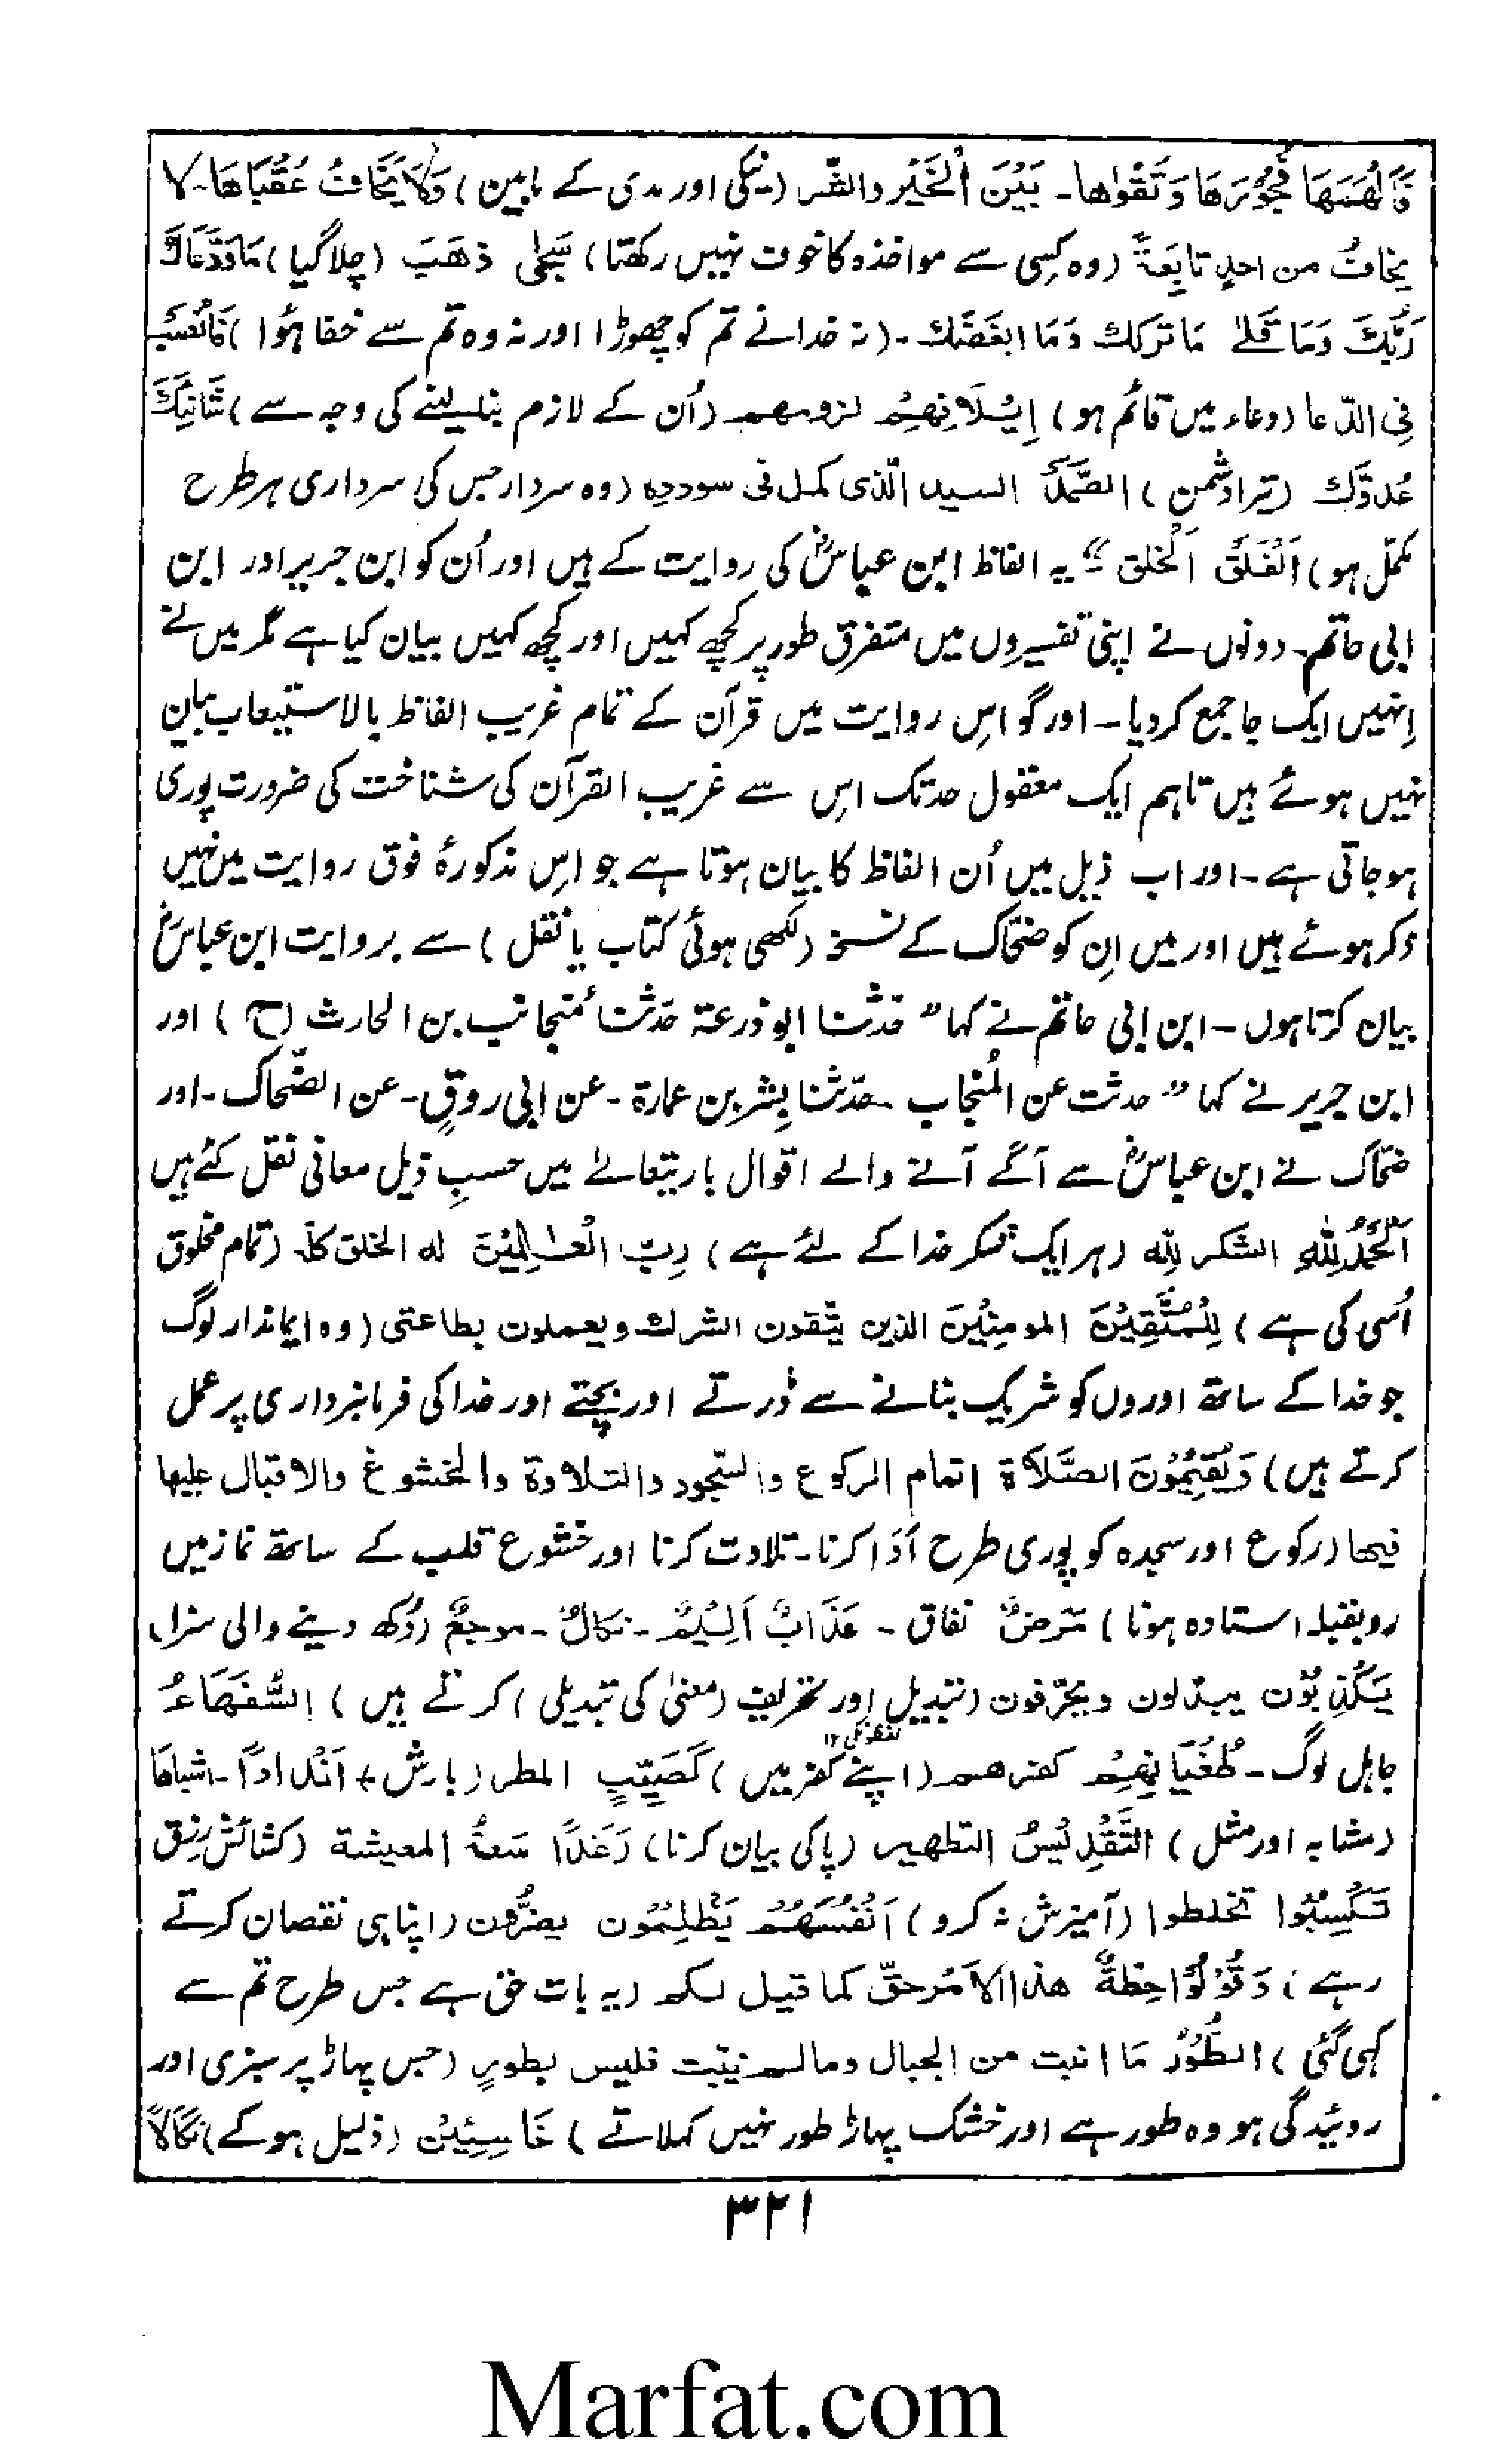 فَاَلْهَمَهَا فُجُوْرَهَا وَتَقْوٰهَا۔ بَيْنَ الْخَيْرِ والشّر (نیکی اور بدی کے مابین) وَلَا يَخَافُ عُقْبَاهَا۔ لا
يخافُ من احدٍ تابِعَةً (وہ کسی سے مواخذہ کا خوف نہیں رکھتا) سَجٰى ذهَبَ (چلا گیا) مَاوَدَّعَكَ
رَبُّكَ وَمَا قَلٰے مَا تركك وَمَا ابغَضَكَ۔ (نہ خدا نے تم کو چھوڑا اور نہ وہ تم سے خفا ہُوا) فَانْصَبْ
فِى الدّعا (دعاء میں قائم ہو) اِيْلَافِهِمْ لزومهم (اُن کے لازم بنا لینے کی وجہ سے) شَانِئَكَ
عُدوّك (تیرا دشمن) الصَّمَدُ السيد الّذى كمل فى سوددہ (وہ سردار جس کی سرداری ہر طرح
مکمّل ہو) اَلْفَلَقِ اَلْخلق“ یہ الفاظ ابن عباسؓ کی روایت کے ہیں اور اُن کو ابن جریر اور ابن
ابی حاتم۔ دونوں نے اپنی تفسیروں میں متفرق طور پر کچھ کہیں اور کچھ کہیں بیان کیا ہے مگر میں نے
اِنہیں ایک جا جمع کر دیا۔ اور گو اس روایت میں قرآن کے تمام غریب الفاظ بالاستیعاب بیان
نہیں ہوئے ہیں تاہم ایک معقول حد تک اس سے غریب القرآن کی شناخت کی ضرورت پوری
ہو جاتی ہے۔ اور اب ذیل میں اُن الفاظ کا بیان ہوتا ہے جو اس مذکورۂ فوق روایت میں نہیں
ذکر ہوئے ہیں اور میں اِن کو ضحّاک کے نسخہ (لکھی ہوئی کتاب یا نقل) سے بروایت ابن عباسؓ
بیان کرتا ہوں۔ ابن ابی حاتم نے کہا ”حدّثنا ابوذرعۃ حدّثنا مُنجاب بن الحارث (ح) اور
ابن جریر نے کہا ”حدثت عن المُنجاب۔ حدّثنا بِشر بن عمارۃ۔ عن ابی روقٍ۔ عن الضّحاک۔ اور
ضحّاک نے ابن عباسؓ سے آگے آنے والے اقوال باریتعالےٰ میں حسبِ ذیل معانی نقل کئے ہیں
اَلْحَمْدُلِلّٰهِ الشكر للّٰه (ہر ایک شکر خدا کے لئے ہے) رَبِّ الْعٰلَمِيْنَ له الخلق كلّه (تمام مخلوق
اُسی کی ہے) لِلْمُتَّقِيْنَ المومنِيْنَ الذين يتّقون الشرك ويعملون بطاعتى (وہ ایماندار لوگ
جو خدا کے ساتھ اوروں کو شریک بنانے سے ڈرتے اور بچتے اور خدا کی فرمانبرداری پر عمل
کرتے ہیں) وَيُقِيْمُوْنَ الصَّلَاةَ اتمام الركوع والسّجود والتلاوة والخشوع والاقبال عليها
فيها (رکوع اور سجدہ کو پوری طرح اَدَا کرنا۔ تلاوت کرنا اور خشوع قلب کے ساتھ نماز میں
روبقبلہ استادہ ہونا) مَرَضٌ نفاق۔ عَذَابٌ اَلِيْمٌ۔ نكالٌ۔ موجعٌ (دُکھ دینے والی سزا)
يَكْذِبُوْن يبدّلون ويحرّفون (تبدیل اور تحریف (معنیٰ کی تبدیلی) کرتے ہیں) السُّفَهَاءُ
جاہل لوگ۔ طُغْيَانِهِمْ كفرهم (اپنے کفر میں) كَصَيِّبٍ المطر (بارش) اَنْدَادًا۔ اشباهًا
(مشابہ اور مثل) اَلتَّقْدِيْسُ التطهير (پاکی بیان کرنا) رَغَدًا سَعةُ المعيشة (کشائش رزق
تَلْبِسُوْا تخلطوا (آمیزش نہ کرو) اَنْفُسَهُمْ يَظْلِمُوْن يضرُّون (اپنا ہی نقصان کرتے
رہے) وَقُوْلُوْا حِطَّةٌ هذا الاَمرحقّ كما قيل لكم (یہ بات حق ہے جس طرح تم سے
کہی گئی) الطُّوْرُ مَا انبت من الجبال ومالم ينبت فليس بطورٍ (جس پہاڑ پر سبزی اور
روئیدگی ہو وہ طور ہے اور خشک پہاڑ طور نہیں کہلاتے) خَاسِئِيْن (ذلیل ہو کے) نَكَالاً
۳۲۱
Marfat.com